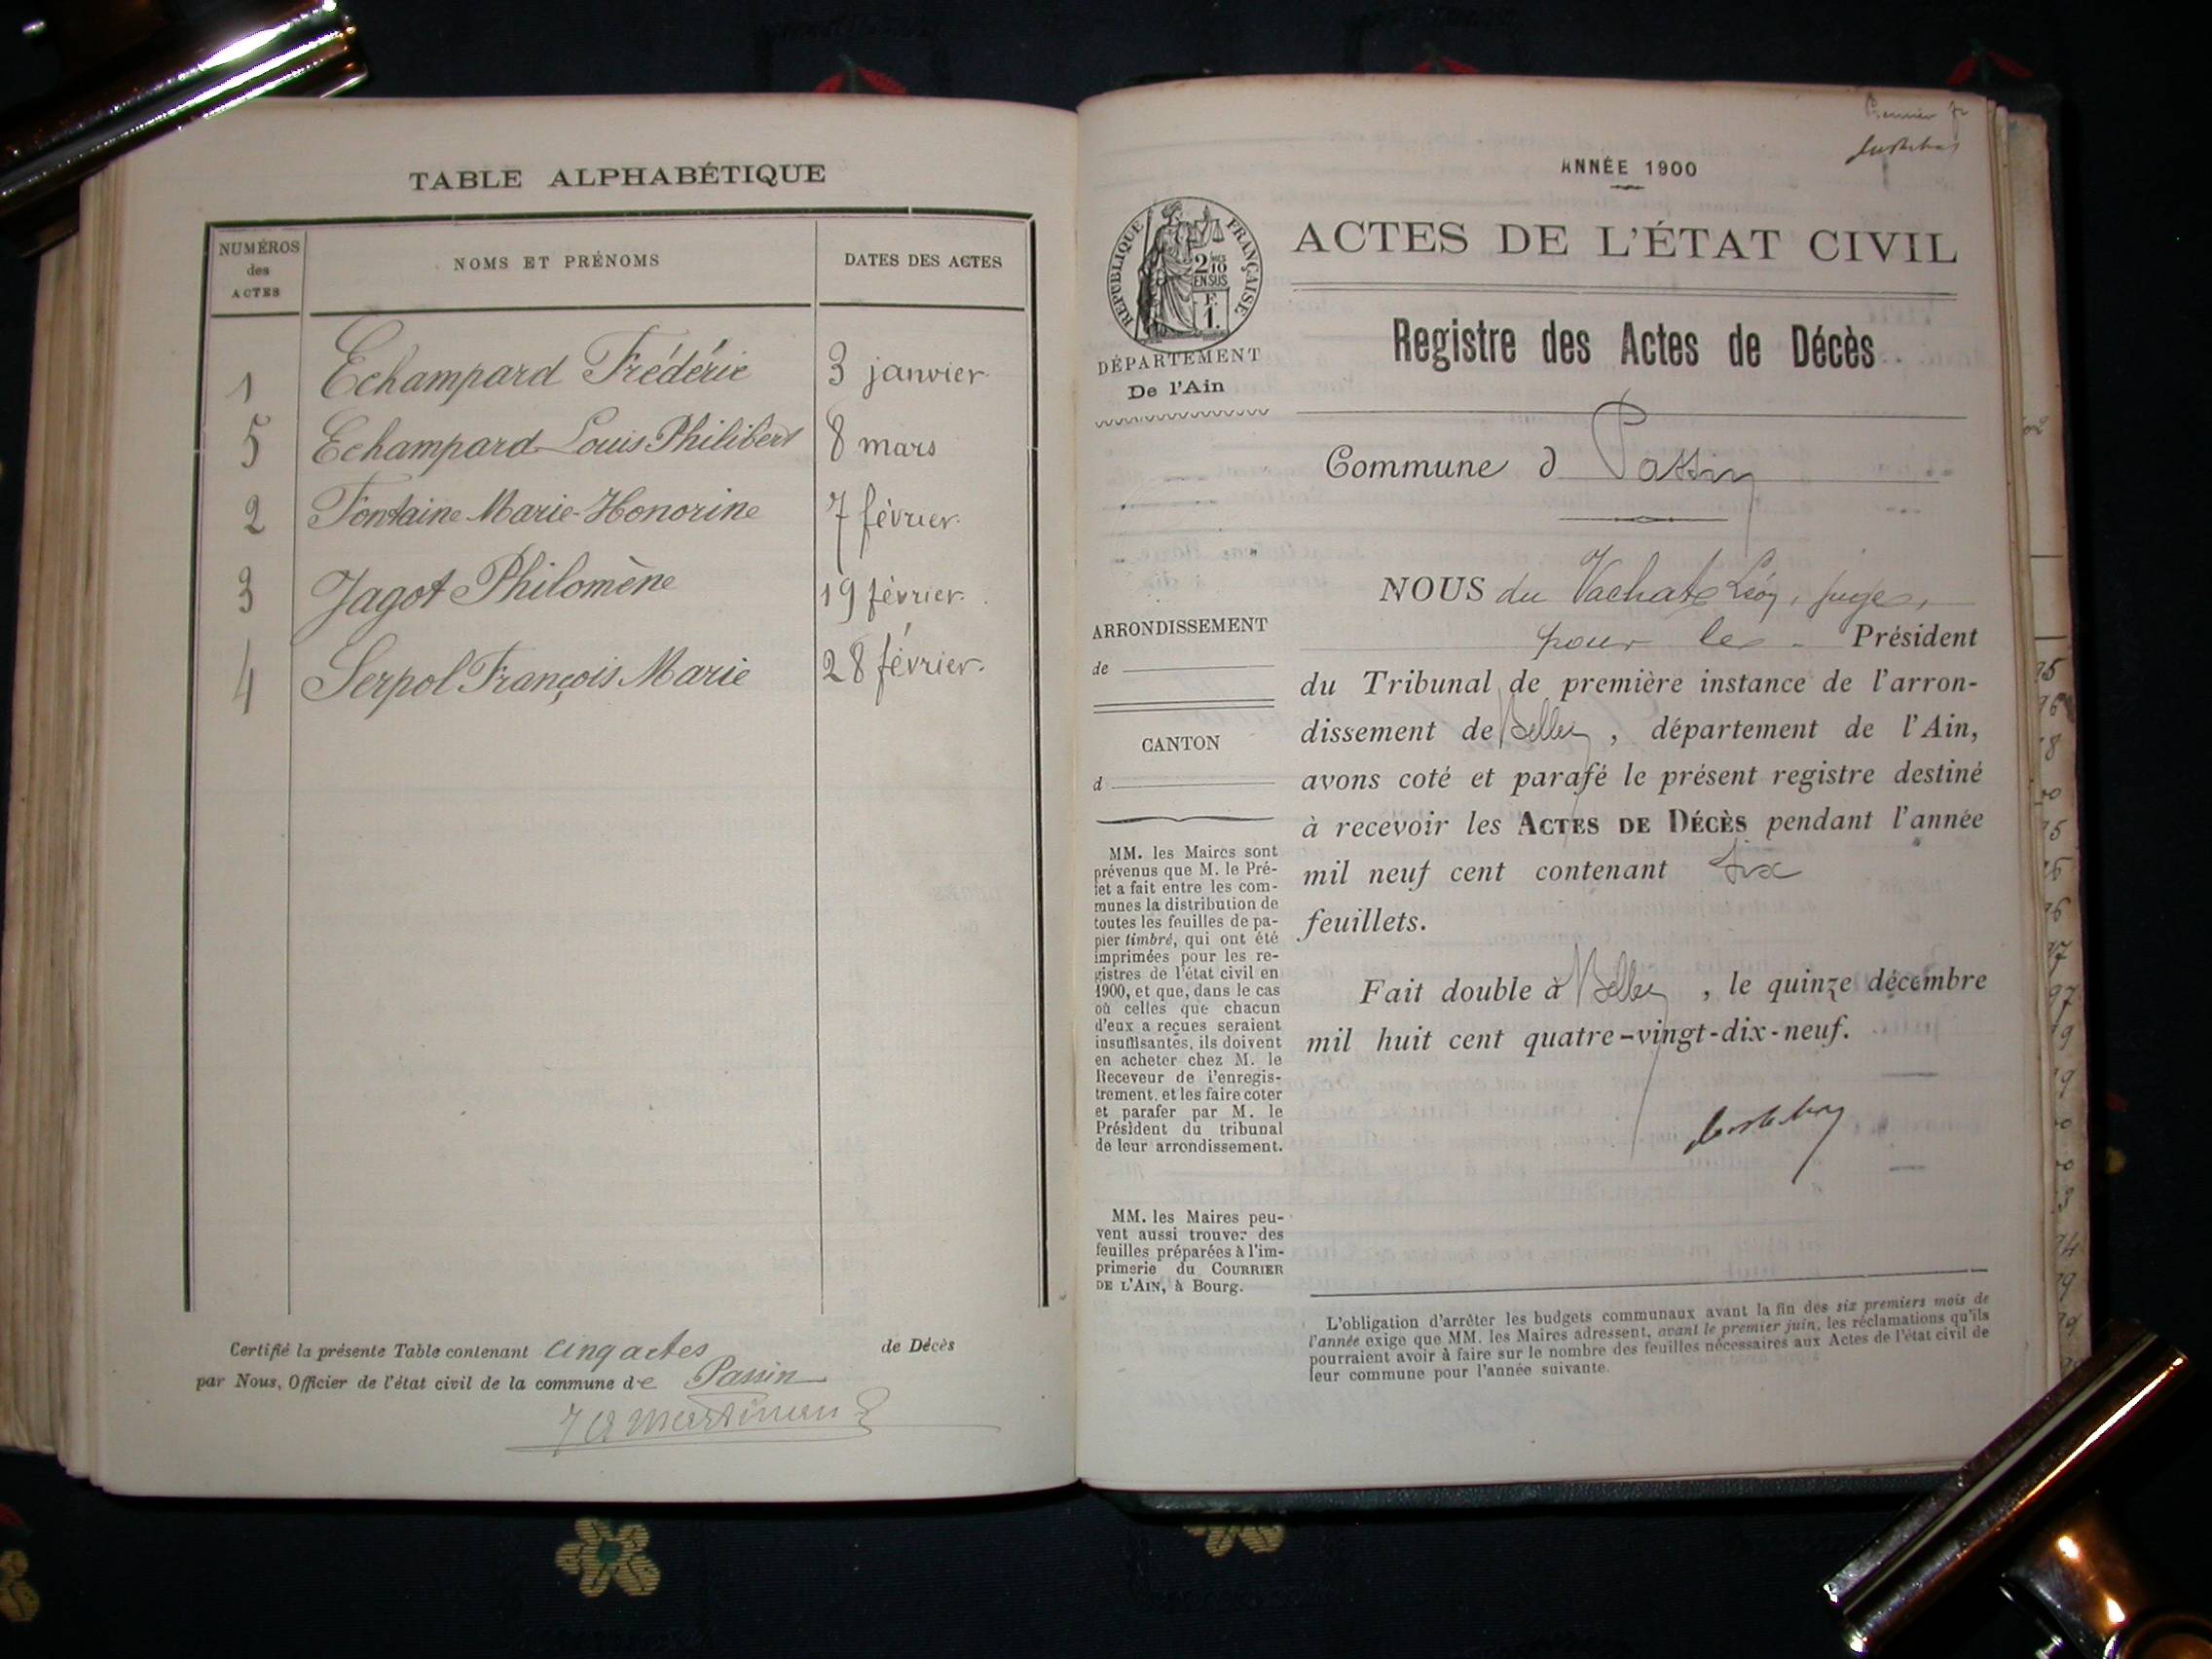 TABLE ALPHABÉTIQUE
NUMÉROS
des
ACTES
NOMS ET PRÉNOMS
DATES DES ACTES
1 Echampard Frédéric 3 janvier
5 Echampard Louis Philibert 8 mars
2 Fontaine Marie-Honorine 7 février.
3 Jagot Philomène 19 février.
4 Serpol François Marie 28 février.
Certifié la présente Table contenant cinq actes de Décès
par Nous, Officier de l'état civil de la commune de Passin
Premier
ANNÉE 1900
RÉPUBLIQUE FRANÇAISE
2/10
EN SUS
F.
1.
ACTES DE L'ÉTAT CIVIL
DÉPARTEMENT
De l'Ain
Registre des Actes de Décès
Commune d Passin
NOUS du Vachat Léon, juge,
pour le Président
du Tribunal de première instance de l'arron-
dissement de Belley, département de l'Ain,
avons coté et parafé le présent registre destiné
à recevoir les ACTES DE DÉCÈS pendant l'année
mil neuf cent contenant six
feuillets.
Fait double à Belley, le quinze décembre
mil huit cent quatre-vingt-dix-neuf.
ARRONDISSEMENT
de
CANTON
d
MM. les Maires sont
prévenus que M. le Pré-
fet a fait entre les com-
munes la distribution de
toutes les feuilles de pa-
pier timbré, qui ont été
imprimées pour les re-
gistres de l'état civil en
1900, et que, dans le cas
où celles que chacun
d'eux a reçues seraient
insuffisantes, ils doivent
en acheter chez M. le
Receveur de l'enregis-
trement, et les faire coter
et parafer par M. le
Président du tribunal
de leur arrondissement.
MM. les Maires peu-
vent aussi trouver des
feuilles préparées à l'im-
primerie du COURRIER
DE L'AIN, à Bourg.
L'obligation d'arrêter les budgets communaux avant la fin des six premiers mois de
l'année exige que MM. les Maires adressent, avant le premier juin, les réclamations qu'ils
pourraient avoir à faire sur le nombre des feuilles nécessaires aux Actes de l'état civil de
leur commune pour l'année suivante.